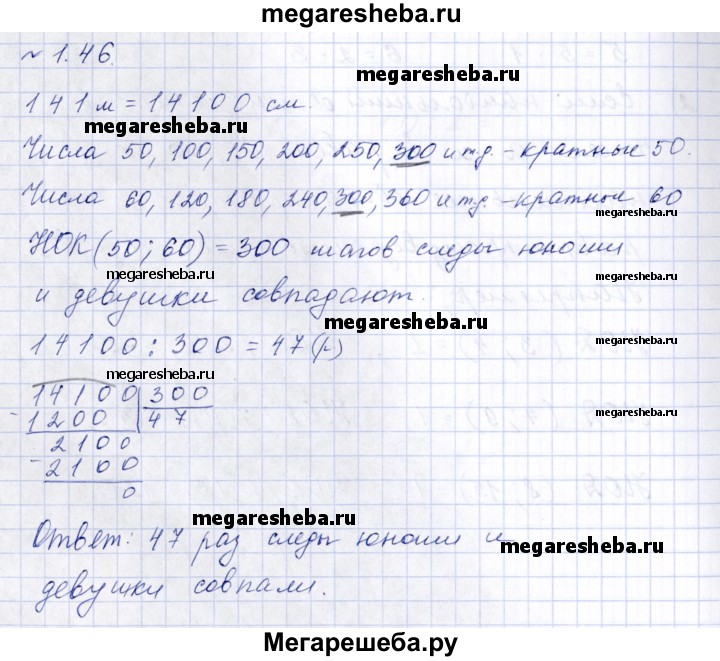 megaresheba.ru
№ 1.46.
megaresheba.ru
141 м = 14100 см.
megaresheba.ru
Числа 50, 100, 150, 200, 250, 300 и тд. - кратные 50.
Числа 60, 120, 180, 240, 300, 360 и тд. - кратное 60
megaresheba.ru
НОК (50; 60) = 300 шагов следы юноши
megaresheba.ru
megaresheba.ru
и девушки совпадают.
megaresheba.ru
14100 : 300 = 47 (р)
14100 300
- 1200 47
megaresheba.ru
2100
- 2100
megaresheba.ru
0
megaresheba.ru
Ответ: 47 раз следы юноши и
megaresheba.ru
девушки совпали.
megaresheba.ru
Мегарешеба.ру